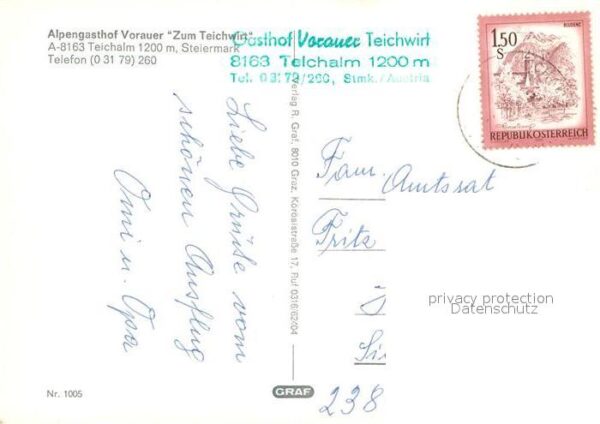 Alpengasthof Vorauer "Zum Teichwirt"
A-8163 Teichalm 1200 m, Steiermark
Telefon (0 31 79) 260
Gasthof Vorauer Teichwirt
8163 Teichalm 1200 m
Tel. 03179/260, Stmk./Austria
BLUDENZ
1,50
S
REPUBLIK ÖSTERREICH
Liebe Grüße vom
schönen Ausflug
Omi u. Opa
Verlag R. Graf, 8010 Graz, Körösistraße 17, Ruf 0316/62/04
Fam. Amtsrat
Fritz
privacy protection
Datenschutz
238
Nr. 1005
GRAF